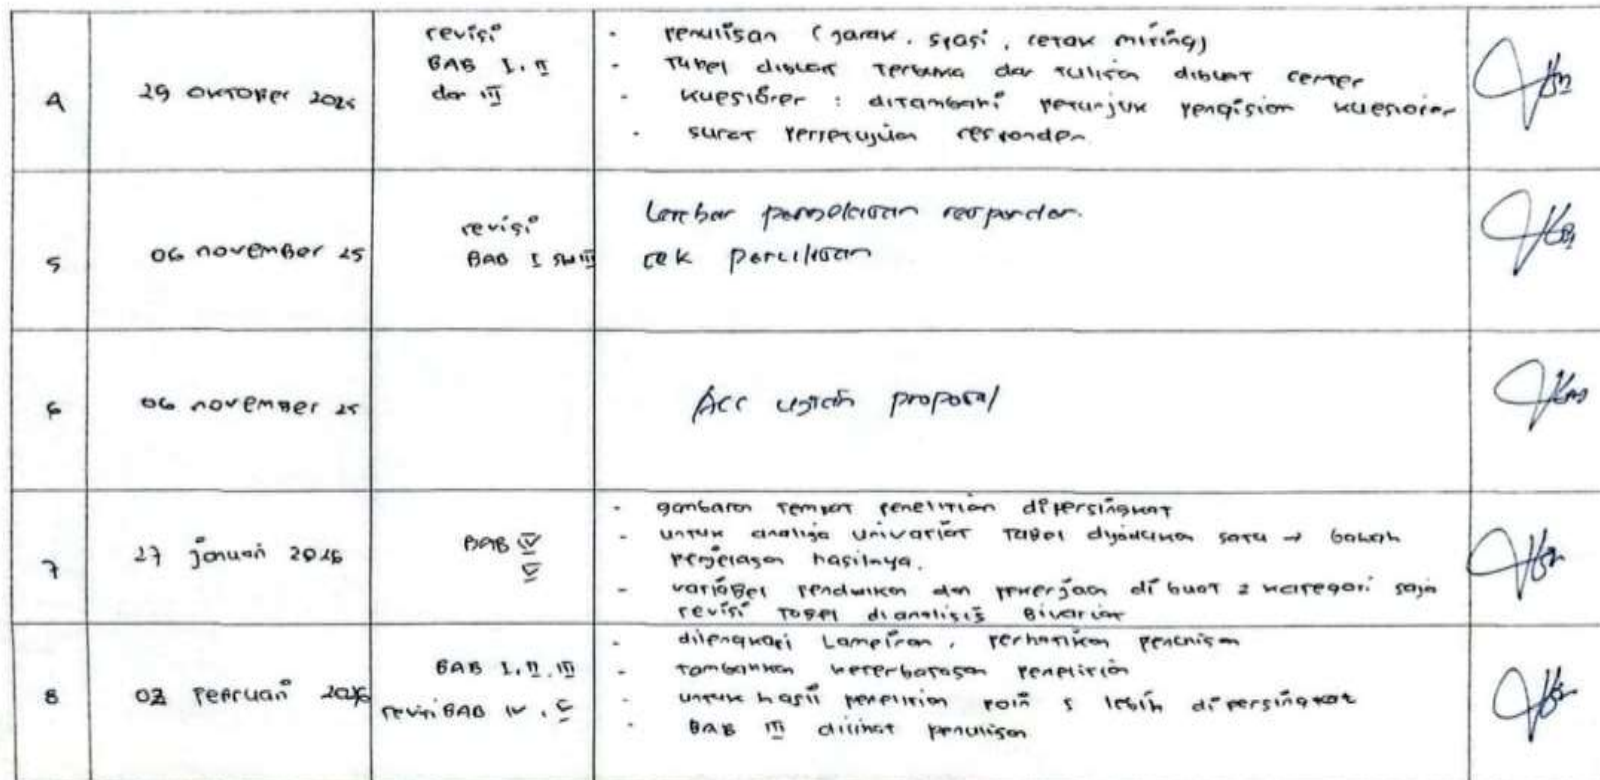 4
29 oktober 2025
revisi
BAB I, II
dan III
- penulisan (jarak, spasi, cetak miring)
- Tabel dibuat terbuka dan tulisan dibuat center
- kuesioner : ditambahi petunjuk pengisian kuesioner
- surat persetujuan responden
5
06 november 25
revisi
BAB I s/d III
Lembar penjelasan responden.
cek penulisan
6
06 november 25
Acc ujian proposal
7
27 januari 2026
BAB IV
V
- gambaran tempat penelitian dipersingkat
- untuk analisa univariat Tabel dijadikan satu → bawah
penjelasan hasilnya.
- variabel pendidikan dan pekerjaan dibuat 2 kategori saja
revisi tabel dianalisis Bivariat
8
02 februari 2026
BAB I, II, III
revisi BAB IV, V
- dilengkapi Lampiran, perhatikan penulisan
- tambahkan keterbatasan penelitian
- untuk hasil penelitian poin 5 lebih dipersingkat
- BAB III dilihat penulisan